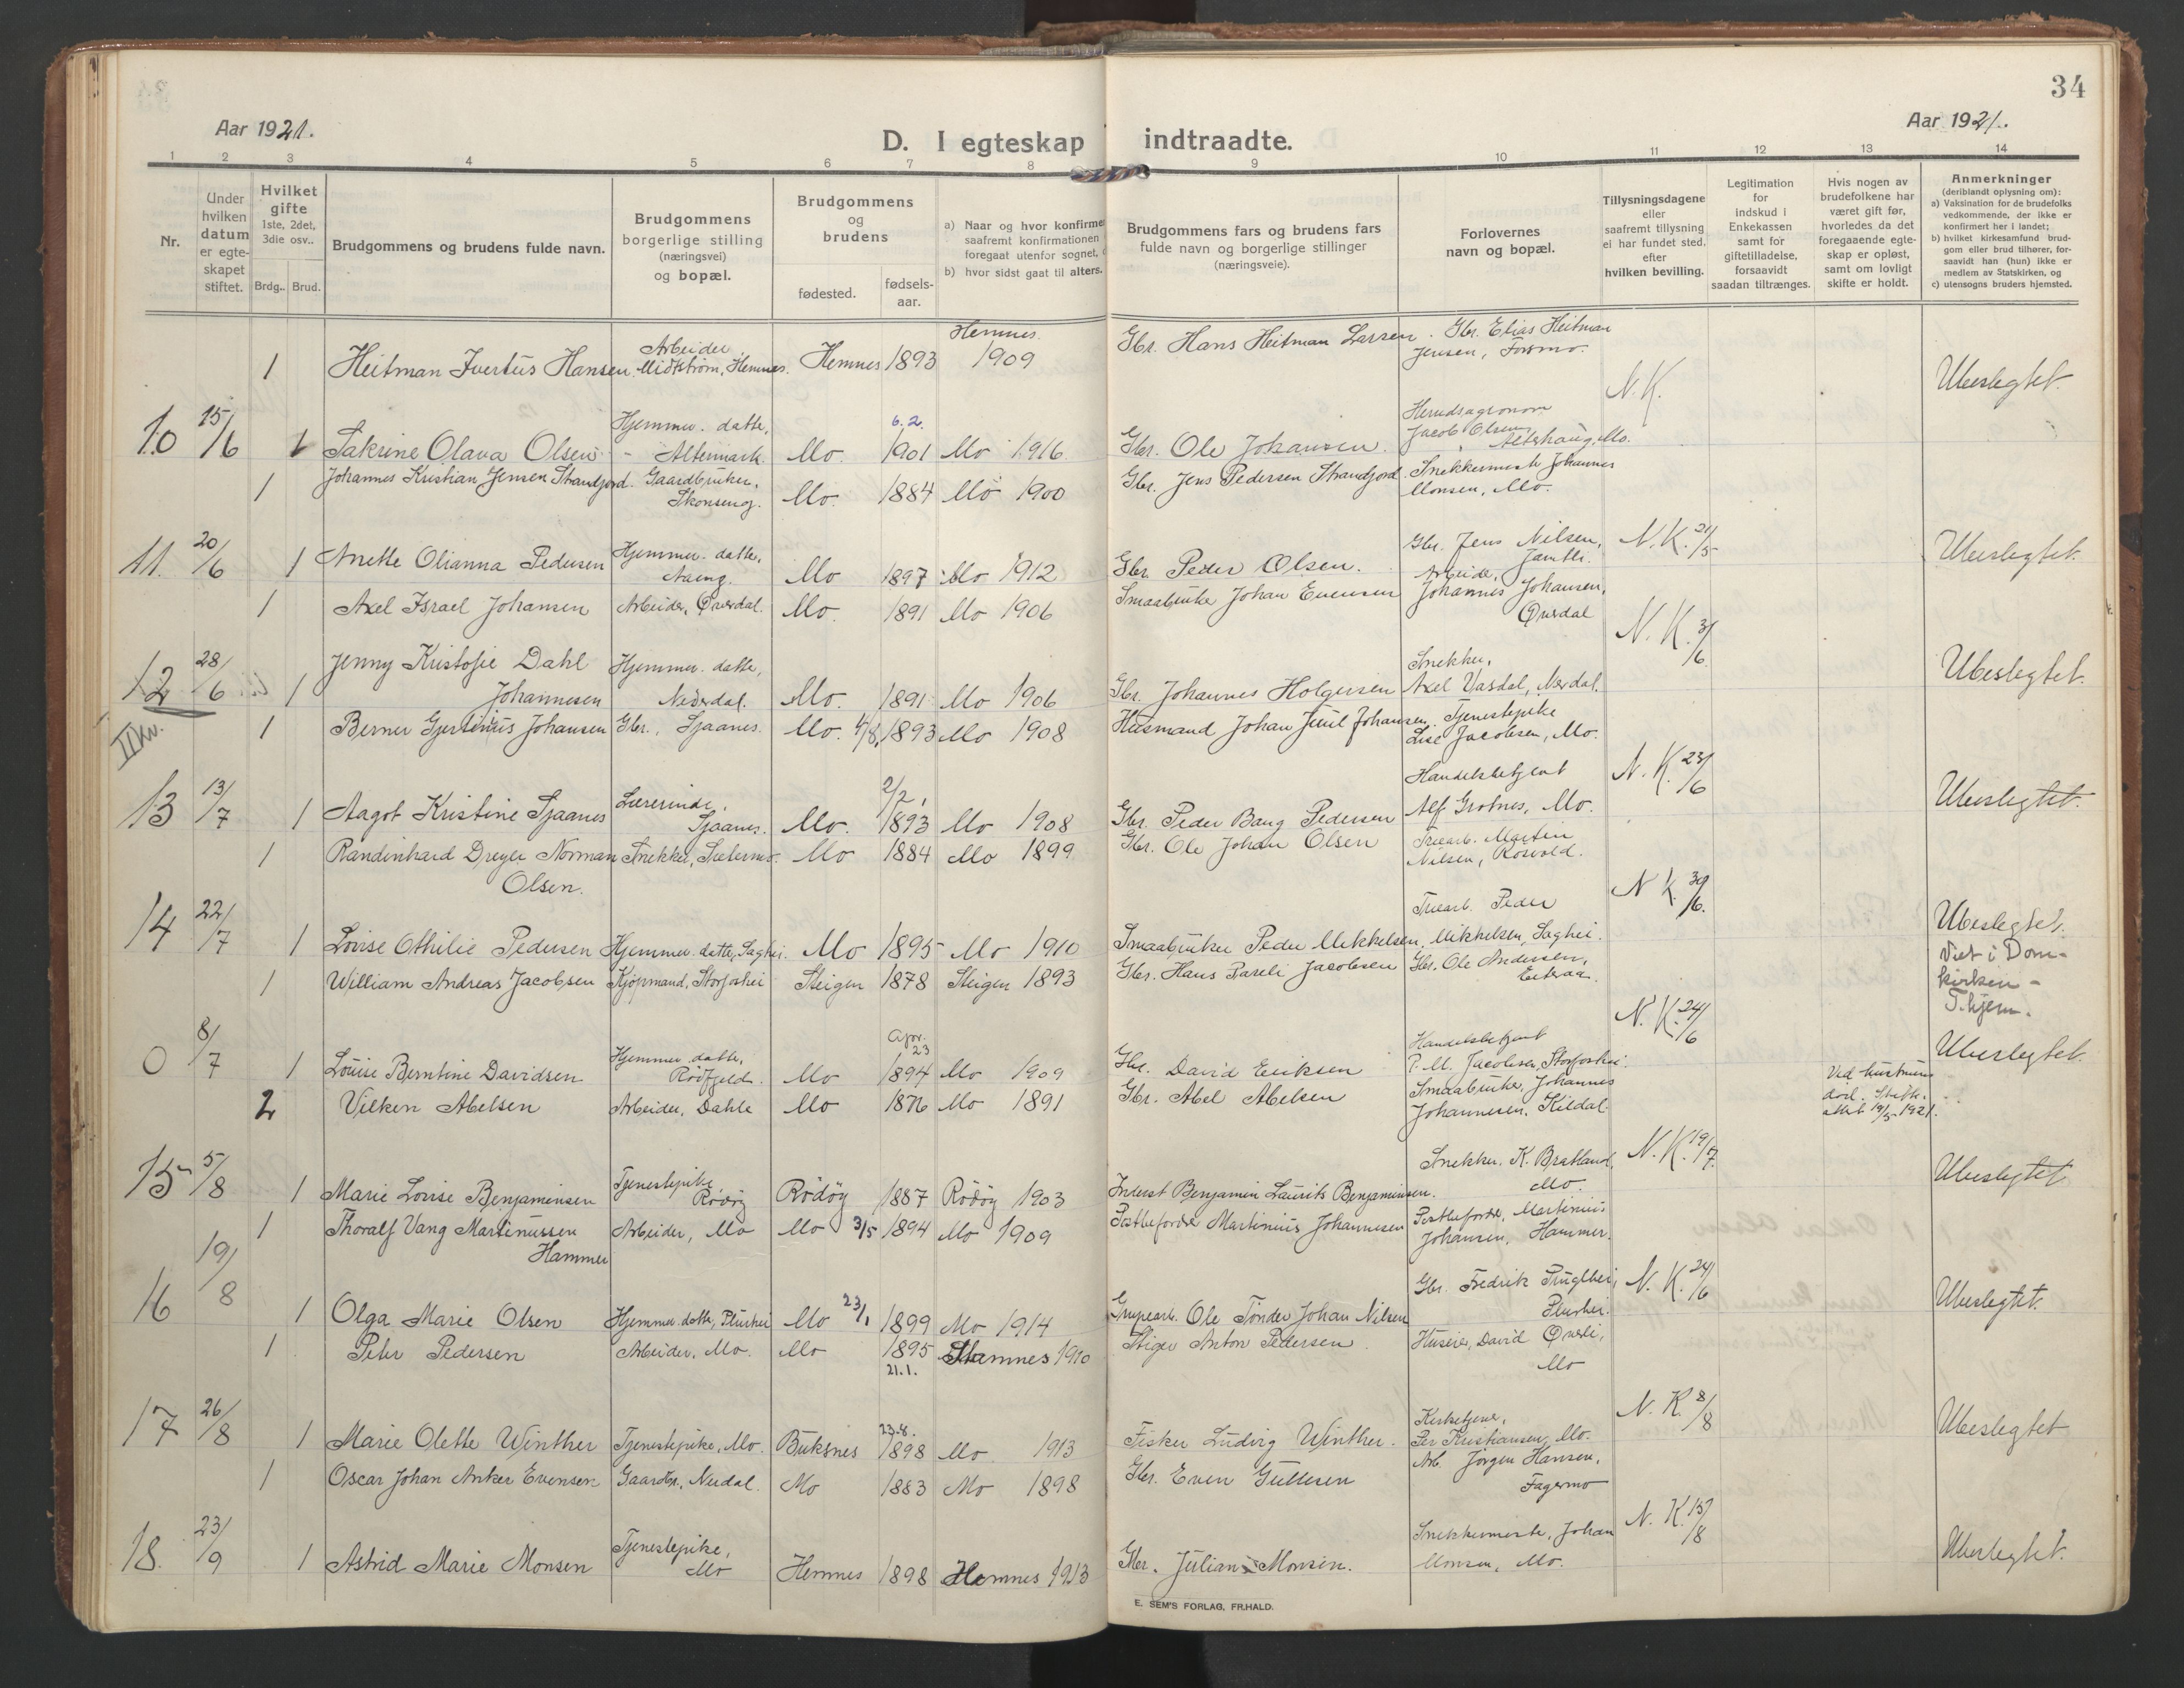 34
Aar 1921.
Aar 1921.
D. I egteskap indtraadte.
1 2 3 4 5 6 7 8 9 10 11 12 13 14
Nr.
Under hvilken datum er egteskapet stiftet.
Hvilket gifte 1ste, 2det, 3die osv..
Brdg.. Brud.
Brudgommens og brudens fulde navn.
Brudgommens borgerlige stilling (næringsvei) og bopæl.
Brudgommens og brudens
fødested.
fødsels-aar.
a) Naar og hvor konfirmer
saafremt konfirmationen
foregaat utenfor sognet,
b) hvor sidst gaat til alters.
Brudgommens fars og brudens fars fulde navn og borgerlige stillinger (næringsveie).
Forlovernes navn og bopæl.
Tillysningsdagene eller saafremt tillysning ei har fundet sted, efter hvilken bevilling.
Legitimation for indskud i Enkekassen samt for giftetilladelse, forsaavidt saadan tiltrænges.
Hvis nogen av brudefolkene har været gift før, hvorledes da det foregaaende egteskap er opløst, samt om lovligt skifte er holdt.
Anmerkninger
(deriblandt oplysning om):
a) Vaksination for de brudefolks vedkommende, der ikke er konfirmert her i landet;
b) hvilket kirkesamfund brudgom eller brud tilhører, forsaavidt han (hun) ikke er medlem av Statskirken, og
c) utensogns bruders hjemsted.
1 Heitman Ivertus Hansen Arbeider Midtstrøm, Hemnes. Hemnes 1893 Hemnes. 1909 Gbr. Hans Heitman Larsen. Gbr. Elias Heitman Jensen, Formo.
N.K. Ubeslegtet.
10 15/6 1 Sakrine Olava Olsen Hjemmev. datter, Altermark. Mo. 6.2. 1901 Mo 1916. Gbr. Ole Johansen. Jacob Olsen, Altershaug, Mo.
1 Johannes Kristian Jensen Strandjord. Gaardbruker, Skonseng. Mo. 1884 Mo 1900 Gbr. Jens Pedersen Strandjord. Snekkermester Johannes Monsen, Mo.
11. 20/6 1 Anette Olianna Pedersen Hjemmev. datter, Aaeng. Mo 1897 Mo 1912 Gbr. Peder Olsen. Gbr. Jens Nilsen, Jamtli. N.K. 21/5 Ubeslegtet.
1 Axel Israel Johansen Arbeider, Øverdal. Mo. 1891 Mo 1906 Smaabruker Johan Evensen Arbeider, Johannes Johansen, Øverdal
12 28/6 1 Jenny Kristofie Dahl Johannesen Hjemmev. datter, Nederdal. Mo. 1891 Mo 1906 Gbr. Johannes Holgersen Snekker, Axel Vasdal, Nerdal. N.K. 3/6. Ubeslegtet.
II Kv.
1 Berner Gjertinius Johansen Gbr., Sjaanes. Mo. 4/8. 1893 Mo 1908 Husmand Johan Juul Johansen. Tjenestepike Lise Jacobsen, Mo.
13 13/7 1 Aagot Kristine Sjaanes Lærerinde, Sjaanes. Mo. 2/2, 1893 Mo 1908 Gbr. Peder Bang Pedersen Handelsbetjent Alf Grotnes, Mo. N.K. 23/6 Ubeslegtet.
1 Randinhard Dreyer Norman Olsen. Snekker, Sætermo. Mo 1884 Mo 1899 Gbr. Ole Johan Olsen Træarb. Martin Nilsen, Rosvold.
14 22/7 1 Lovise Othilie Pedersen Hjemmev. datter, Saghei. Mo 1895 Mo 1910 Smaabruker Peder Mikkelsen. Træarb. Peder Mikkelsen, Saghei. N.K. 30/6. Ubeslegtet.
1 William Andreas Jacobsen Kjøpmand, Storforshei Steigen 1878 Steigen 1893 Gbr. Hans Pareli Jacobsen Gbr. Ole Andersen,
Viet i Domkirken - T.hjem.
0 8/7 1 Louise Berntine Davidsen Hjemmev. datter, Rødfjeld. Mo Apr. 23 1894 Mo 1909 Gbr. David Eriksen Handelsbetjent P. M. Jacobsen, Storforshei. N.K. 24/6 Ubeslegtet.
2 Vilken Abelsen Arbeider, Dahle Mo 1876 Mo 1891 Gbr. Abel Abelsen Smaabruker, Johannes Johannesen, Kildal. Ved hustruens død. Skifteattest 19/5 1921.
15 5/8 1 Marie Lovise Benjaminsen Tjenestepike, Rødøy Rødøy 1887 Rødøy 1903 Inderst Benjamin Laurits Benjaminsen. Snekker, K. Bratland, Mo. N.K. 19/7. Ubeslegtet
1 Thoralf Vang Martinussen Hammer Arbeider, Mo Mo 3/5 1894 Mo 1909 Postbefordrer Martinius Johannesen Postbefordr., Martinius Johansen, Hammer.
16 19/8 1 Olga Marie Olsen Hjemmev. datter, Plurhei Mo 23/1 1899 Mo 1914 Grupearb. Ole Tønder Johan Nilsen Gbr. Fredrik Pluglhei, Plurhei. N.K. 24/6 Ubeslegtet.
1 Peter Pedersen Arbeider, Mo. Mo 1895 21.1. Stamnes 1910 Stiger Anton Pedersen. Huseier, David Øverli, Mo
17 26/8 1 Marie Olette Winther Tjenestepike, Mo. Buksnes 23.8. 1898 Mo 1913 Fisker Ludvig Winther. Kirketjener, Per Kristiansen, Mo. N.K. 8/8 Ubeslegtet
1 Oscar Johan Anker Evensen Gaardbr., Nerdal. Mo 1883 Mo 1898 Gbr. Even Gullesen Arb. Jørgen Hansen, Fagermo
18. 23/9 1 Astrid Marie Monsen Tjenestepike, Mo Hemnes 1898 Hemnes 1913 Gbr. Julian Monsen. Snekkermester, Johan Monsen, Mo. N.K. 15/8 Ubeslegtet.
E. SEM'S FORLAG, FR.HALD.